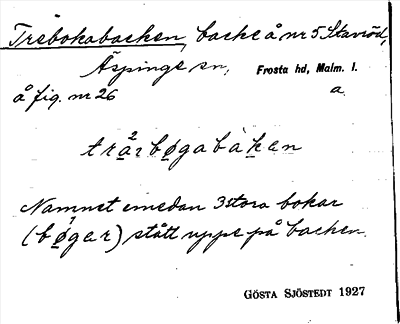 Trebokabacken, backe å nr 5 Stavröd,
Äspinge sn, Frosta hd, Malm. l.
å fig. nr 26 a
bøgabaken
Namnet emedan 3 stora bokar
(bøgar) stått uppe på backen.
GÖSTA SJÖSTEDT 1927